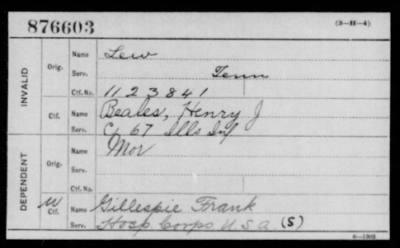 876603
(3-H-4)
INVALID
Orig.
Name Lew
Serv. Tenn
Ctf. No. 1123841
Ctf.
Name Beales, Henry J
Serv. C, 67 Ills Inf
DEPENDENT
Orig.
Name Mor
Serv.
Ctf. No.
W Ctf.
Name Gillespie Frank
Serv. Hosp Corps U.S.A (S)